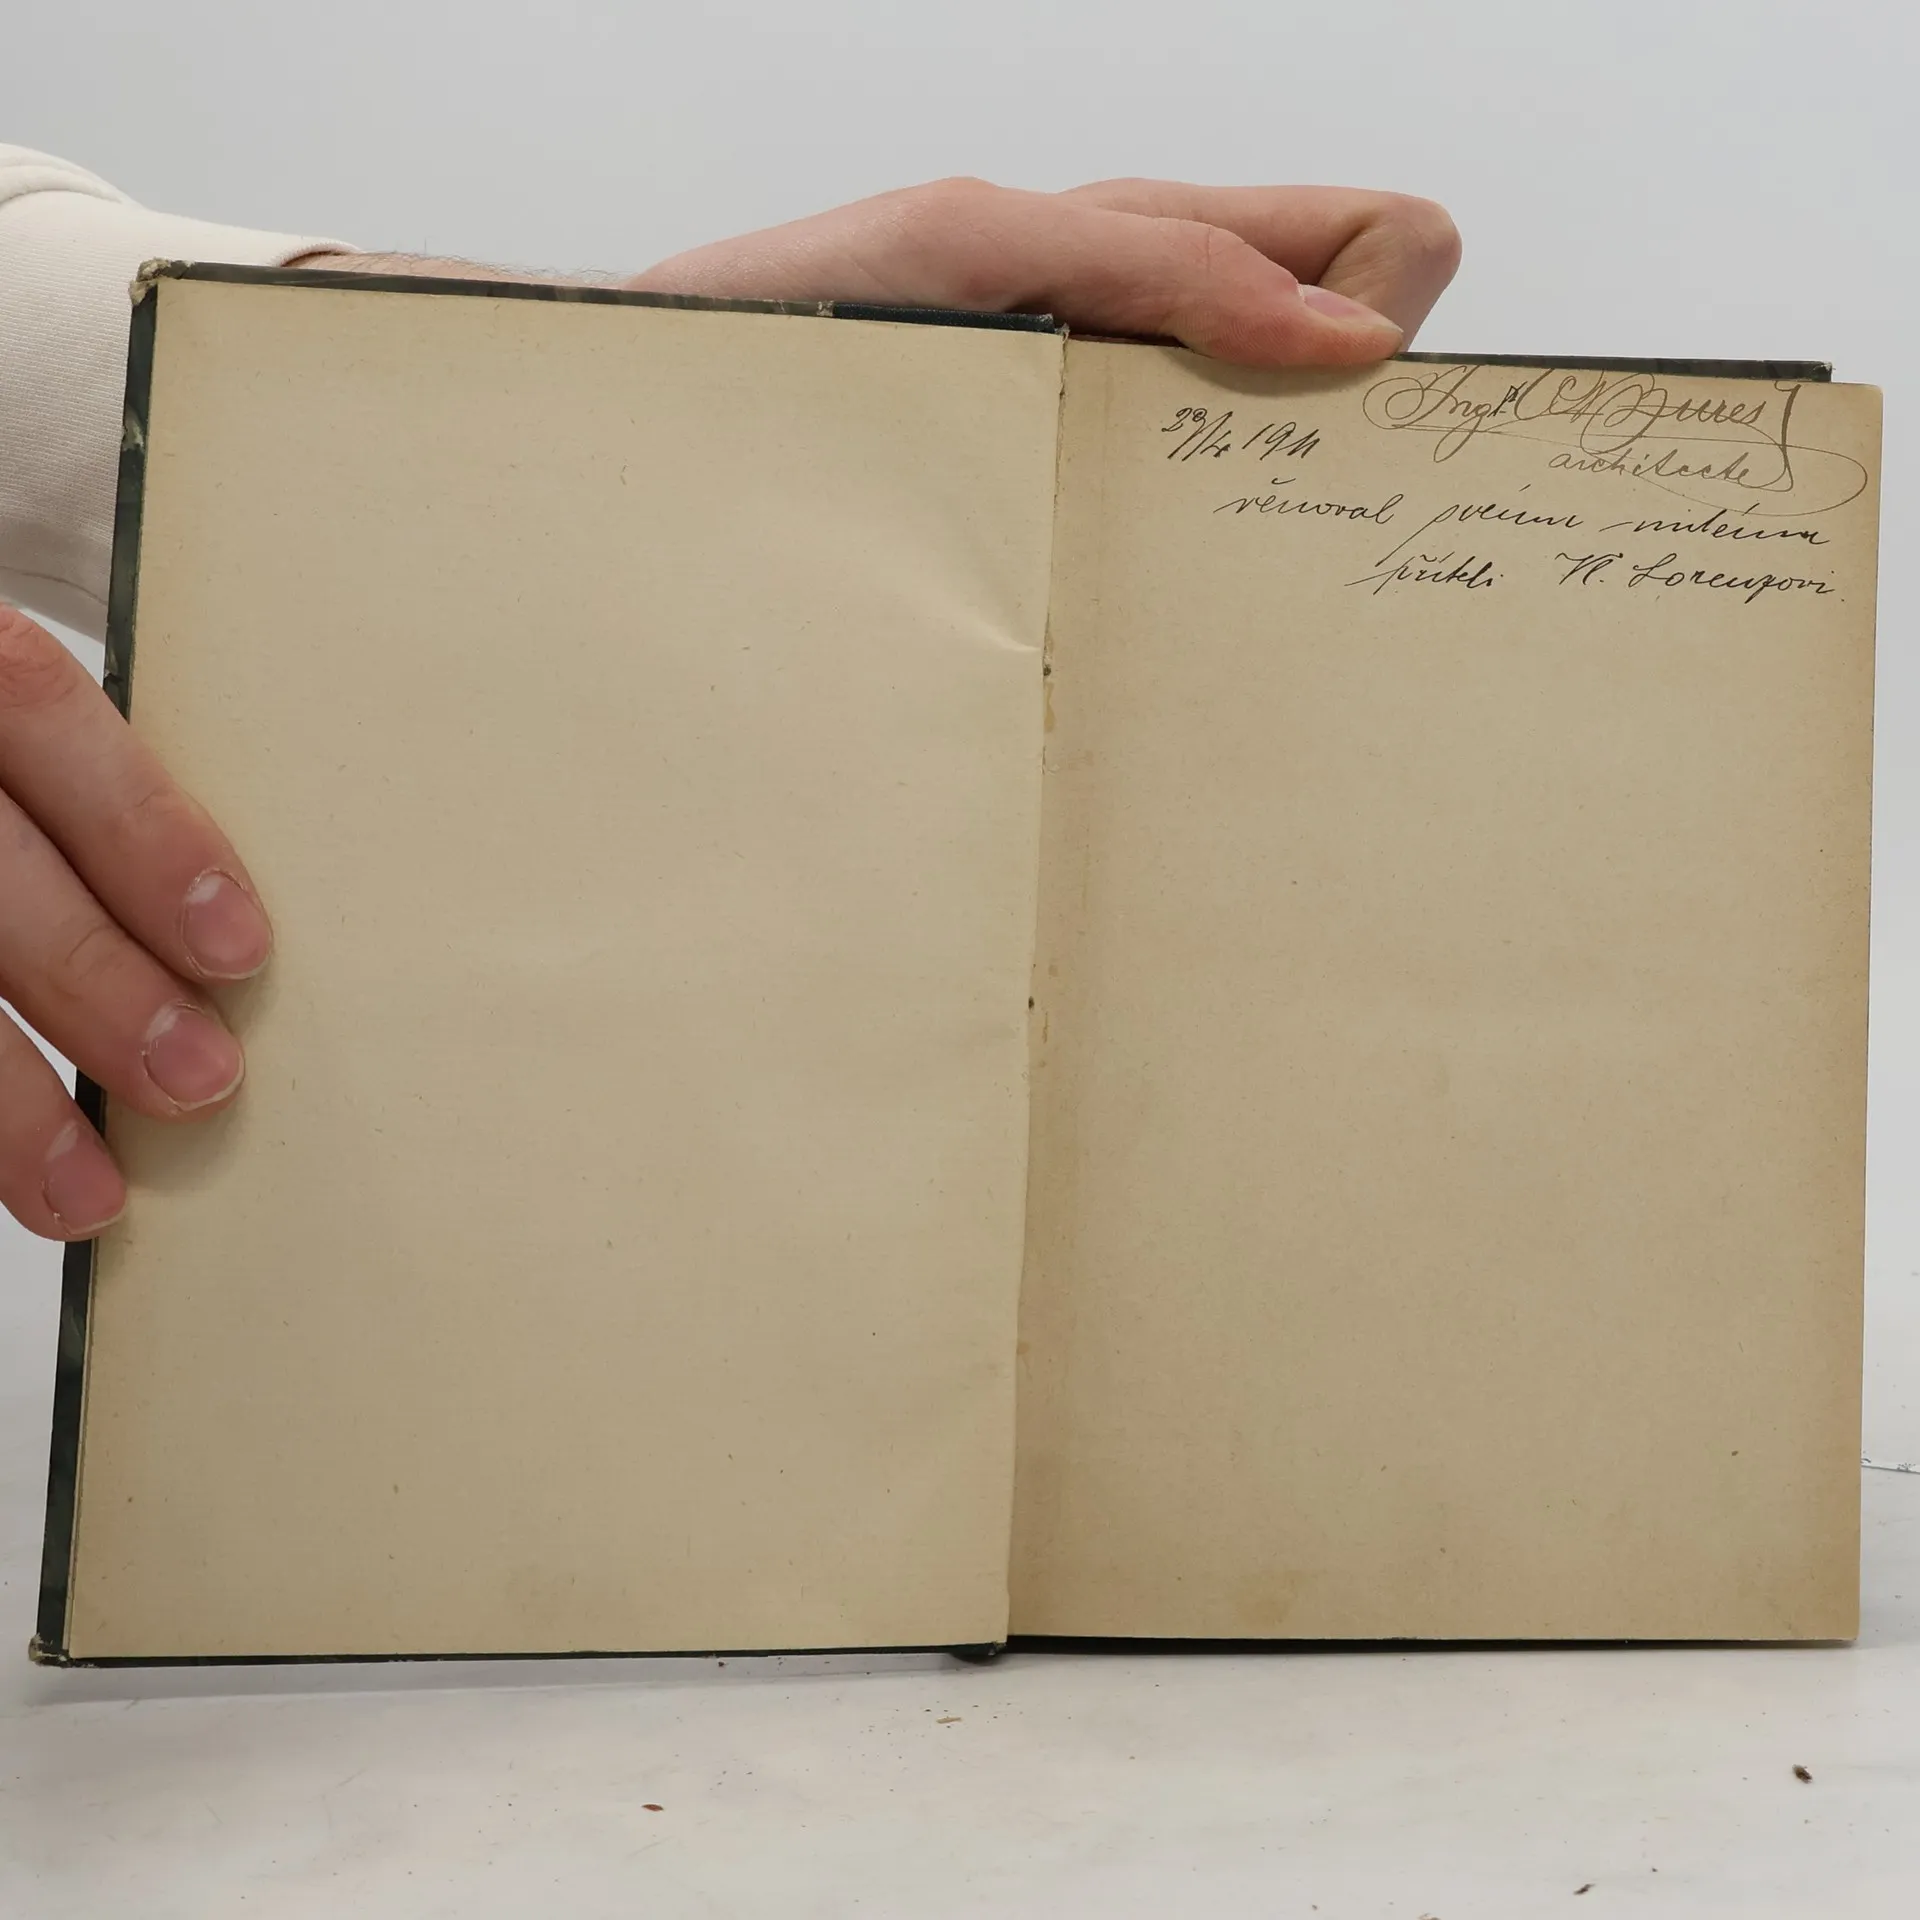 Bureš
29/4 1911
architecte
věnoval svému milému
příteli Vl. Lorenzovi.